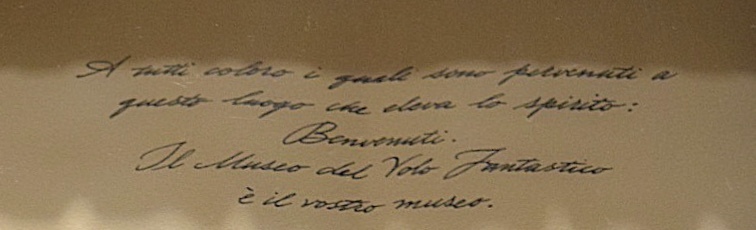 A tutti coloro i quale sono pervenuti a
questo luogo che eleva lo spirito:
Benvenuti.
Il Museo del Volo Fantastico
è il vostro museo.